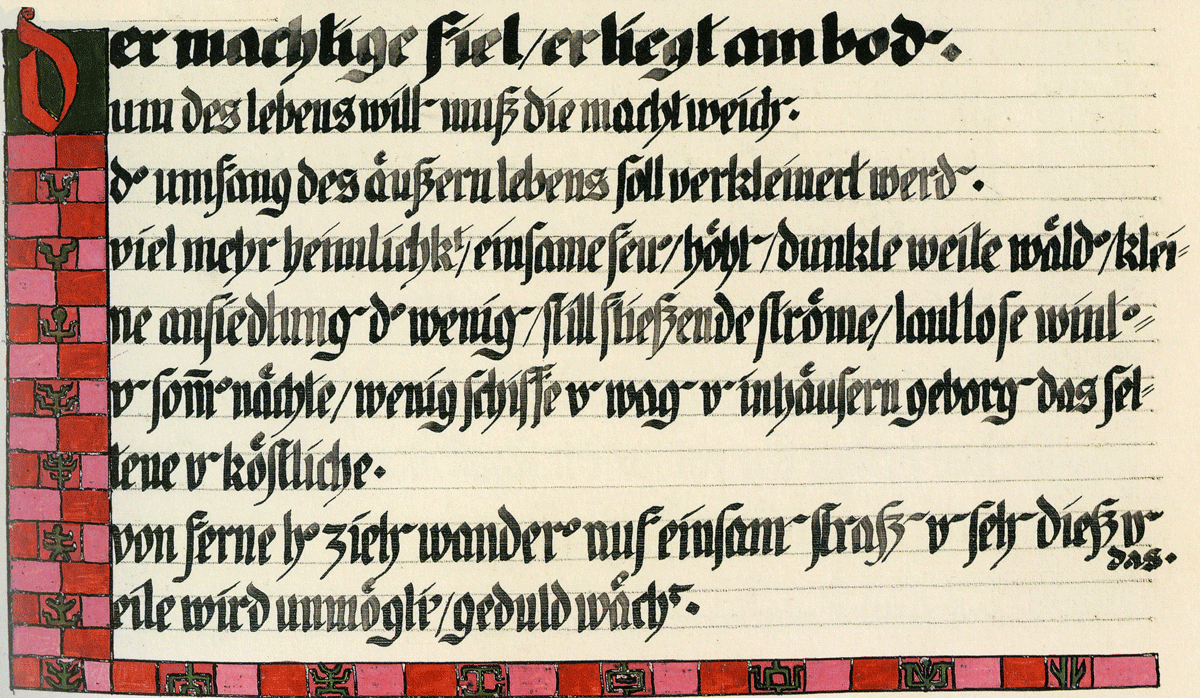 Der machtige fiel/er liegt am bod~.
um des lebens will~ muß die macht weich~.
d° umfang des äußern lebens soll verkleinert werd~.
viel mehr heimlichkᵗ/einsame feu°/höhl~/dunkle weite wäld°/klei=
ne ansiedlung~ d° wenig~/still fließende ströme/lautlose wint°=
u~ som̄° nächte/wenig schiffe u~ wag~ u~ in häusern geborg~ das sel=
tene u~ köstliche.
von ferne h° zieh~ wander° auf einsam~ straß~ u~ seh~ dieß u~
das.
eile wird unmögliᶜ/geduld wächˢ.